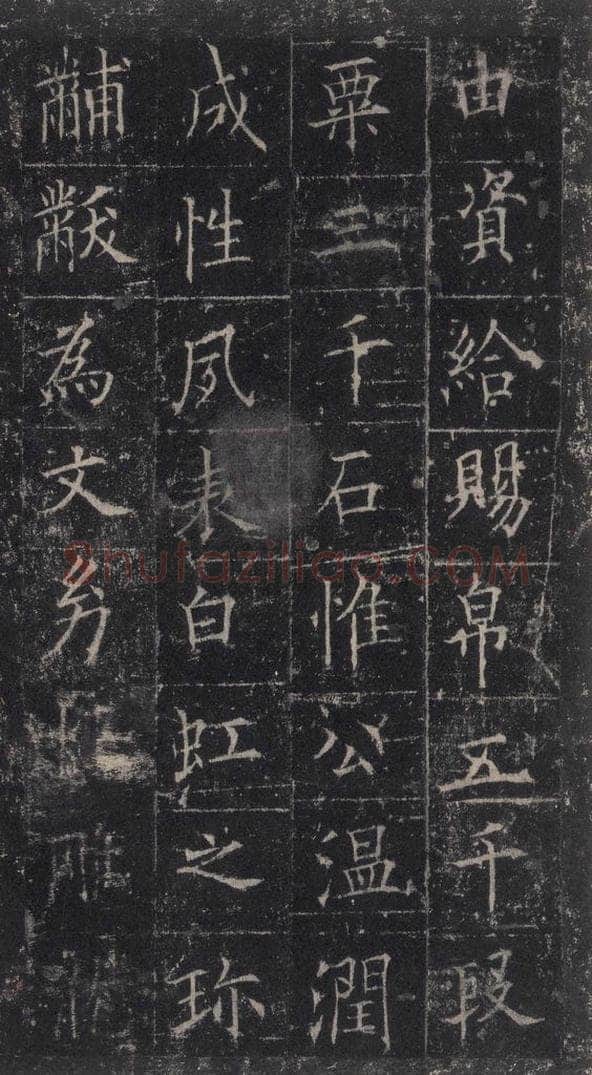 由資給賜帛五千段
粟三千石惟公温潤
成性夙表白虹之珍
黼黻為文㓜雕
Shufaziliao.COM